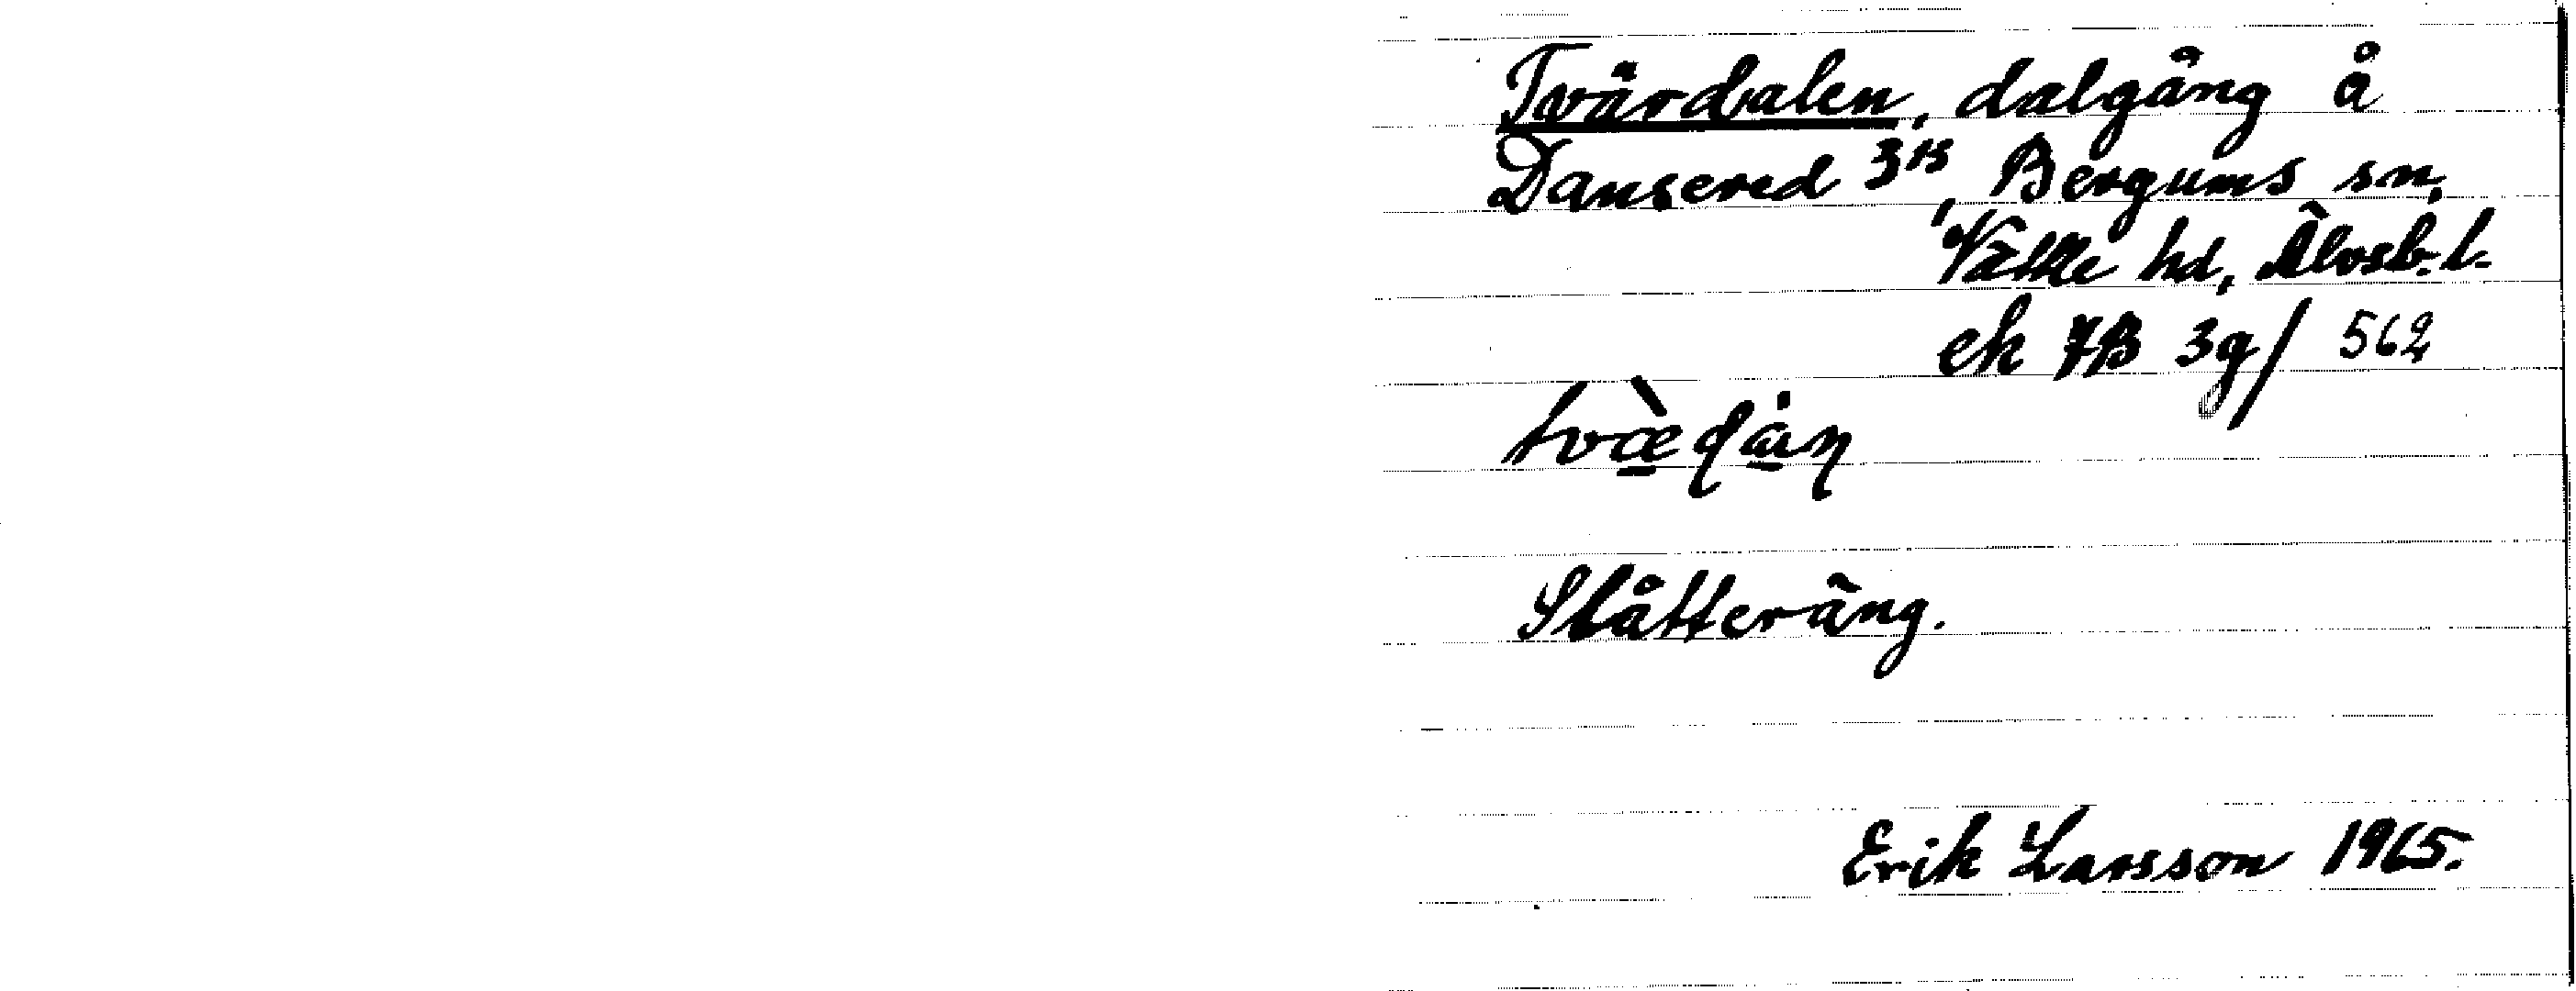 Tvärdalen, dalgång å
Dansered 3¹⁵, Bergums sn,
Vättle hd, Älvsb. l.
ek 7B 3g/ 562
Slåtteräng.
Erik Larsson 1965.